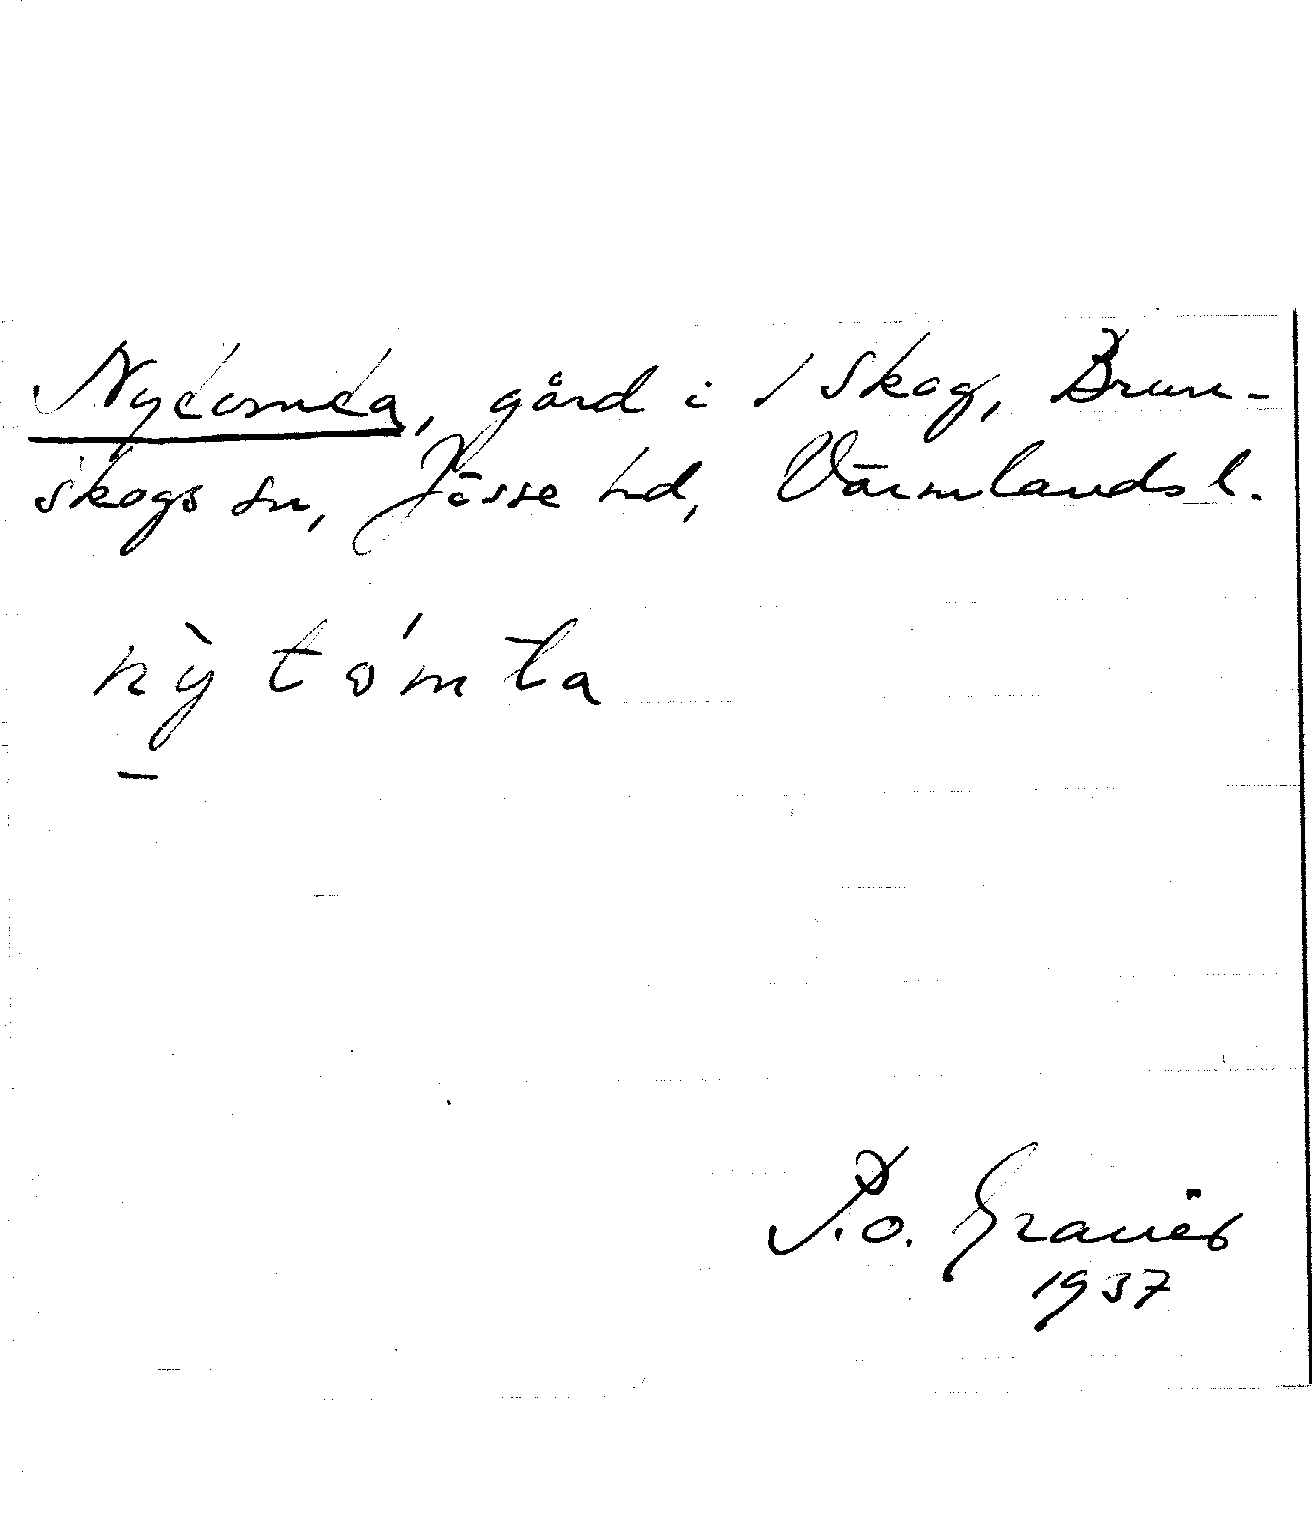 Nytomta, gård i 1 Skog, Brun-
skogs sn, Jösse hd, Värmlands l.
nỳ tómta
P.o. Granér
1937